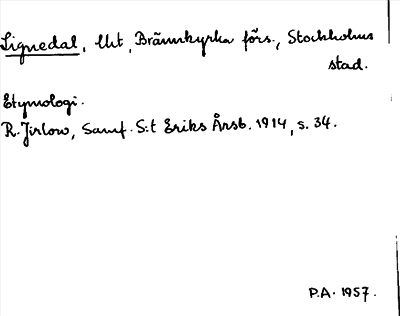 Lignedal, lht, Brännkyrka förs., Stockholms
stad.
Etymologi.
R. Jirlow, Samf. S:t Eriks Årsb. 1914, s. 34.
P.A. 1957.